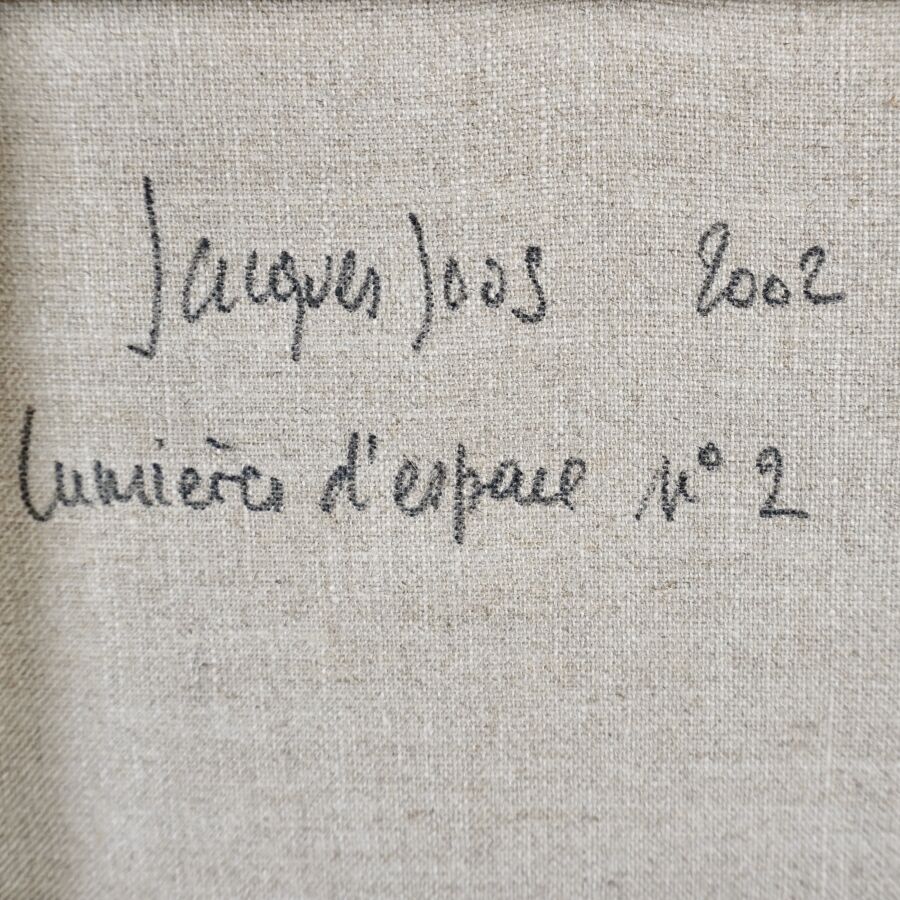 Jacques Joos 2002
Lumières d'espace N° 2